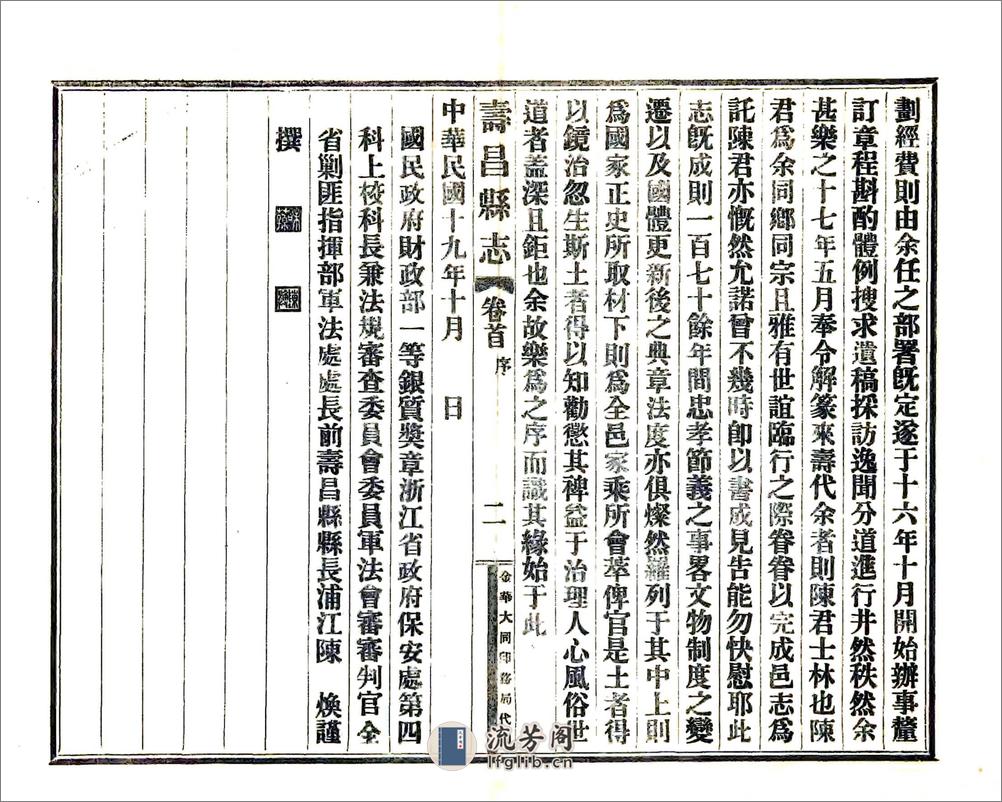 劃經費則由余任之部署既定遂于十六年十月開始辦事釐
訂章程斟酌體例搜求遺稿採訪逸聞分道進行井然秩然余
甚樂之十七年五月奉令解篆來壽代余者則陳君士林也陳
君爲余同鄉同宗且雅有世誼臨行之際眷眷以完成邑志爲
託陳君亦慨然允諾曾不幾時卽以書成見告能勿快慰耶此
志旣成則一百七十餘年間忠孝節義之事畧文物制度之變
遷以及國體更新後之典章法度亦俱燦然羅列于其中上則
爲國家正史所取材下則爲全邑家乘所會萃俾官是土者得
以鏡治忽生斯土者得以知勸懲其裨益于治理人心風俗世
道者蓋深且鉅也余故樂爲之序而識其緣始于此
壽昌縣志 卷首 序 二 金華大同印務局代
中華民國十九年十月 日
國民政府財政部一等銀質奬章浙江省政府保安處第四
科上校科長兼法規審查委員會委員軍法會審審判官全
省剿匪指揮部軍法處處長前壽昌縣縣長浦江陳 煥謹
撰
流芳阁
lfglib.cn